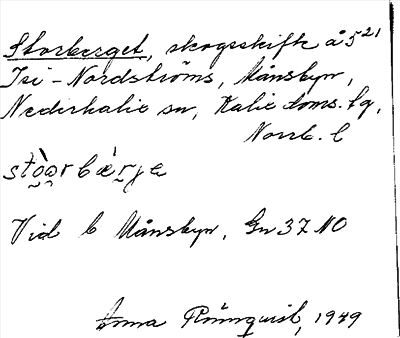 Storberget, skogsskifte å 5²¹
Isi-Nordströms, Månsbyn,
Nederkalix sn, Kalix doms. tg,
Norrb. l
stò̤ərbær̤je
Vid b Månsbyn, Gn 37 NO
Anna Rönnquist, 1949